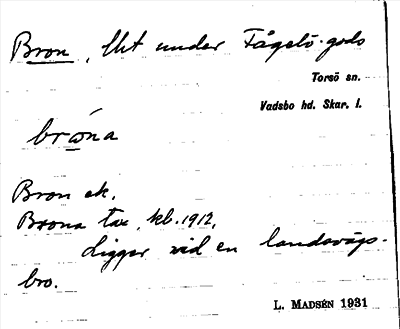 Bron, lht under Fågelö gods
Torsö sn.
Vadsbo hd. Skar. l.
bròna
Bron ek.
Brona tax, kb. 1912.
Ligger vid en landsvägs-
bro.
L. MADSÉN 1931